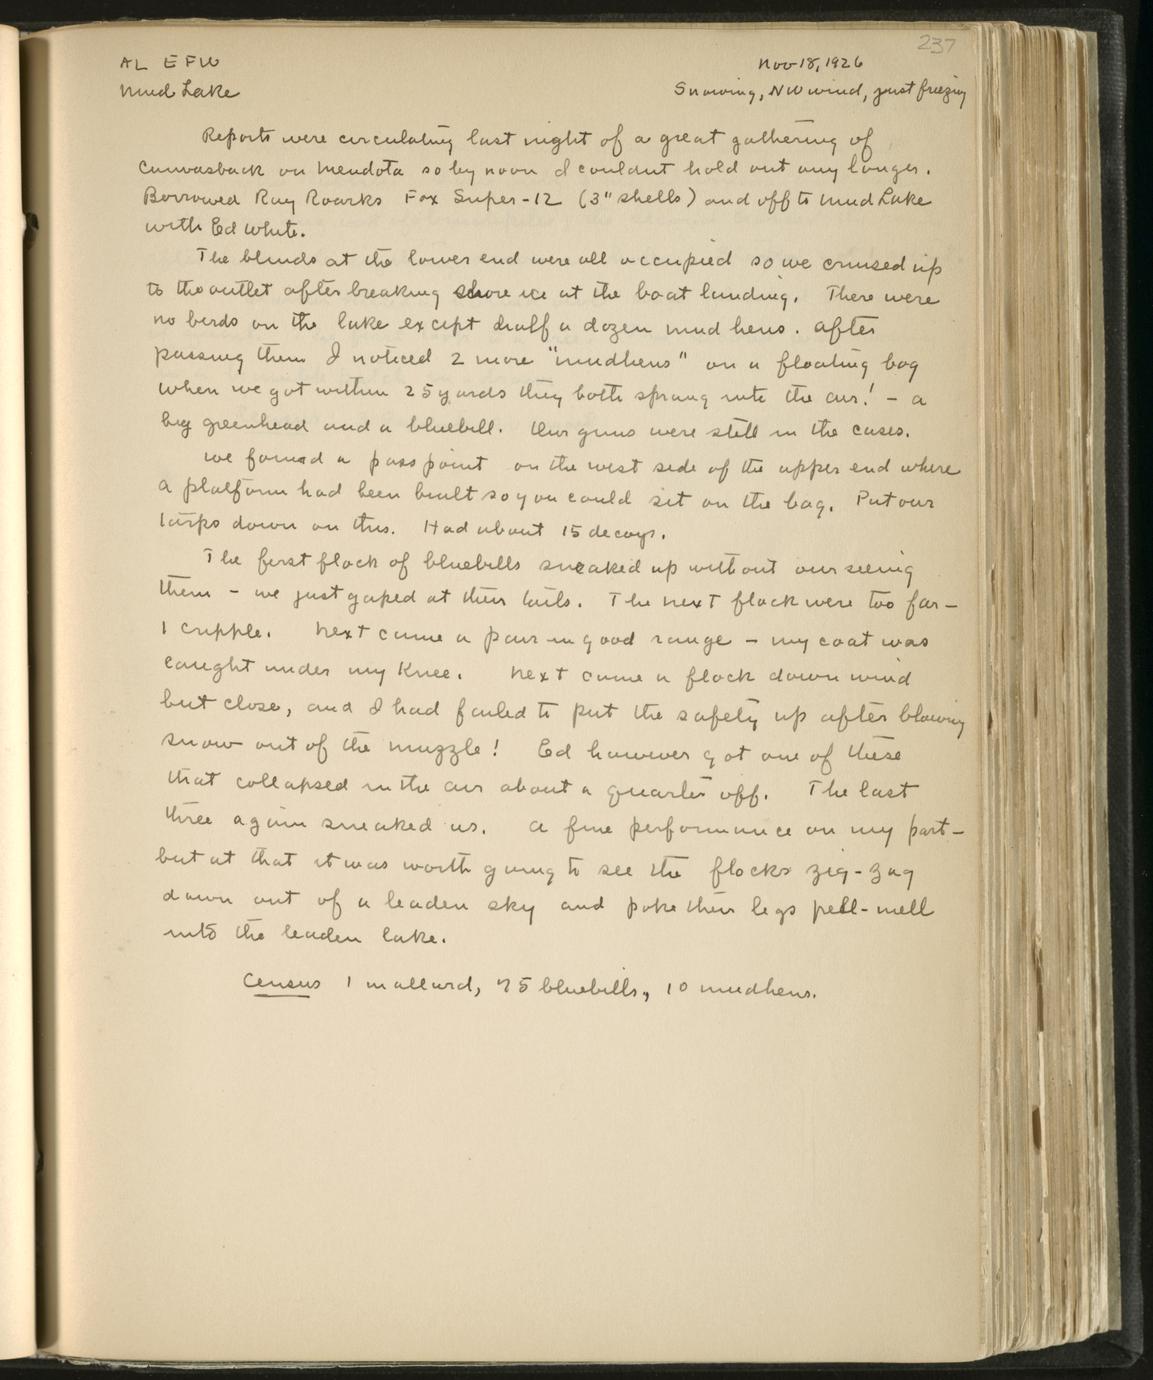 237
AL EFW
Nov 18, 1926
Mud Lake
Snowing, NW wind, just freezing
Reports were circulating last night of a great gathering of
Canvasback on Mendota so by noon I couldnt hold out any longer.
Borrowed Ray Roarks Fox Super-12 (3" shells) and off to Mud Lake
with Ed White.
The blinds at the lower end were all occupied so we cruised up
to the outlet after breaking shore ice at the boat landing. There were
no birds on the lake except half a dozen mud hens. After
passing them I noticed 2 more "mudhens" on a floating bog
when we got within 25 yards they both sprang into the air! - a
big greenhead and a bluebill. Our guns were still in the cases.
We found a pass point on the west side of the upper end where
a platform had been built so you could sit on the bog. Put our
tarps down on this. Had about 15 decoys.
The first flock of bluebills sneaked up without our seeing
them - we just gaped at their tails. The next flock were too far -
1 cripple. Next came a pair in good range - my coat was
caught under my knee. Next came a flock down wind
but close, and I had failed to put the safety up after blowing
snow out of the muzzle! Ed however got one of these
that collapsed in the air about a quarter off. The last
three again sneaked us. A fine performance on my part -
but at that it was worth going to see the flocks zig-zag
down out of a leaden sky and poke their legs pell-mell
into the leaden lake.
Census 1 mallard, 75 bluebills, 10 mudhens.